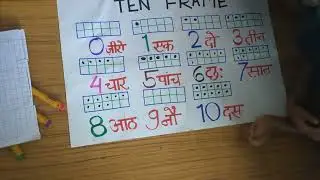 TEN FRAME
0 जीरो 1 एक 2 दो 3 तीन
4 चार 5 पाच 6 छः 7 सात
8 आठ 9 नौ 10 दस